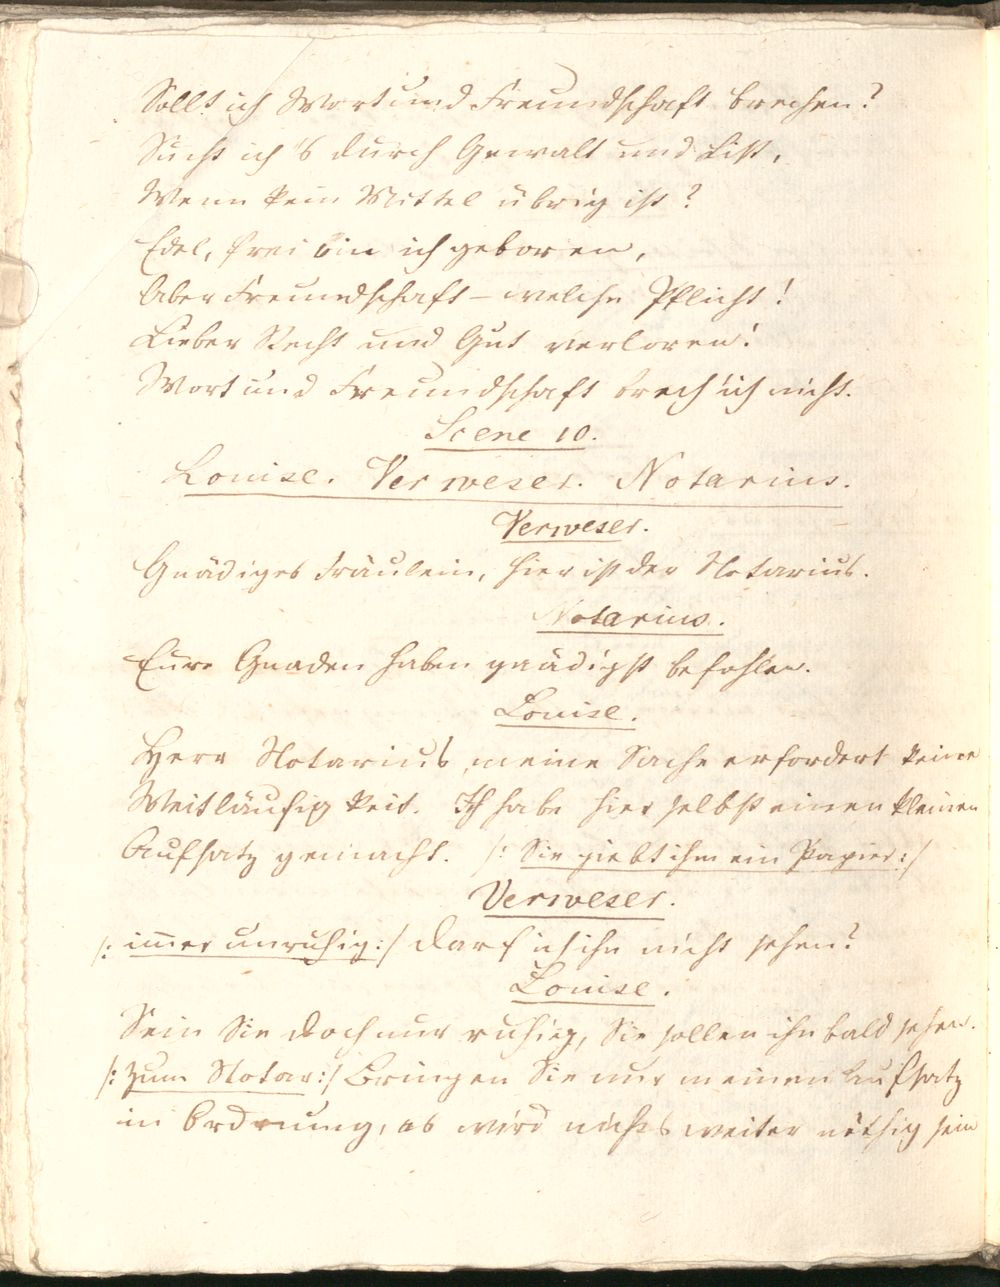 Sollt' ich Wort und Freundschaft brechen?
Sucht ich 's durch Gewalt und List,
Wenn kein Mittel übrig ist?
Edel, frei bin ich geboren,
Aber Freundschaft – welche Pflicht!
Lieber Recht und Gut verloren!
Wort und Freundschaft brech' ich nicht.
Scene 10.
Louise. Verweser. Notarius.
Verweser.
Gnädiges Fräulein, hier ist der Notarius.
Notarius.
Eure Gnaden haben gnädigst befohlen.
Louise.
Herr Notarius, meine Sache erfordert keine
Weitläufigkeit. Ich habe hier selbst einen kleinen
Aufsatz gemacht. /: Sie giebt ihm ein Papier :/
Verweser.
/: immer unruhig :/ Darf ich ihn nicht sehen?
Louise.
Sein Sie doch nur ruhig, Sie sollen ihn bald sehen.
/: zum Notar :/ Bringen Sie nur meinen Aufsatz
in Ordnung, es wird nichts weiter nöthig sein